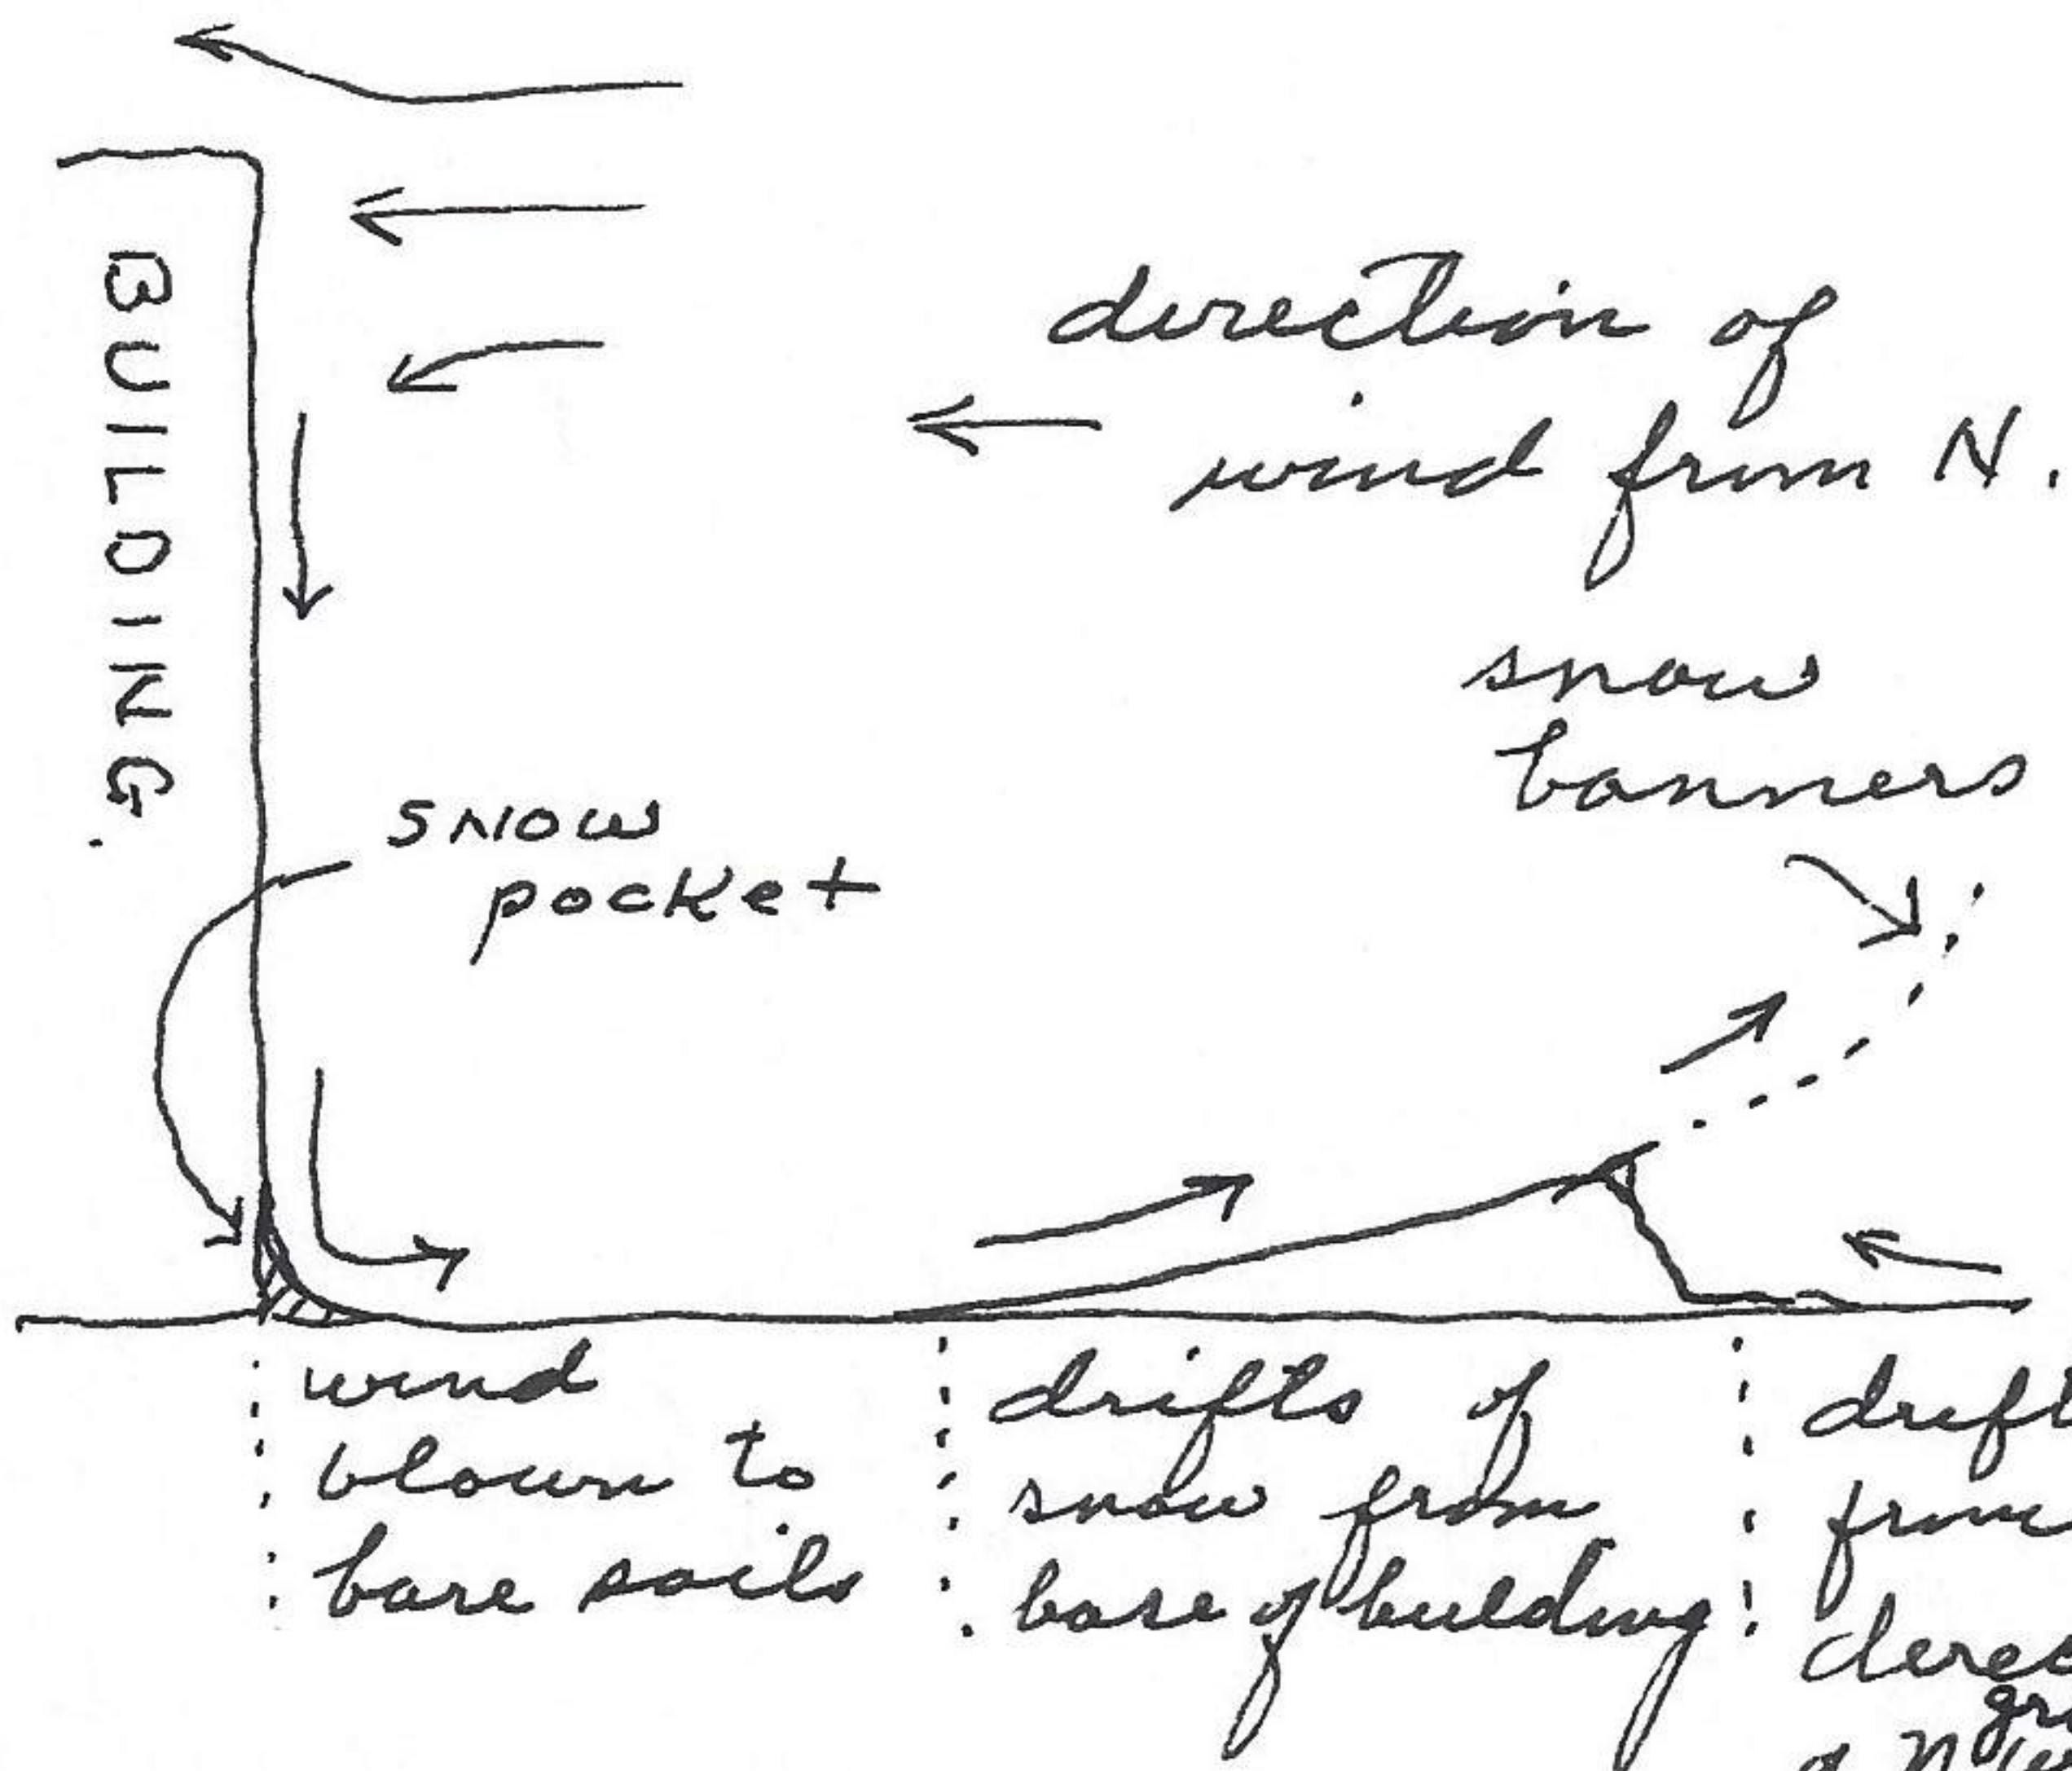 BUILDING.
direction of
wind from N.
snow
banners
snow
pocket
wind
blown to
bare soils
drifts of
snow from
base of building
drift
from
direc
gr